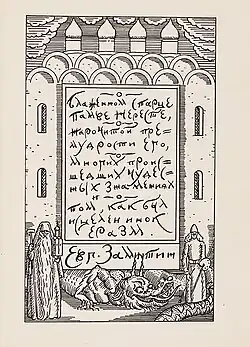 блаженном старце
Памве Нересте,
нарочитой пре=
мудрости его,
многих проис=
шедших чудес=
ных знамениях
и
том, как был
исцелен инок
Еразм
Евг. Замятин